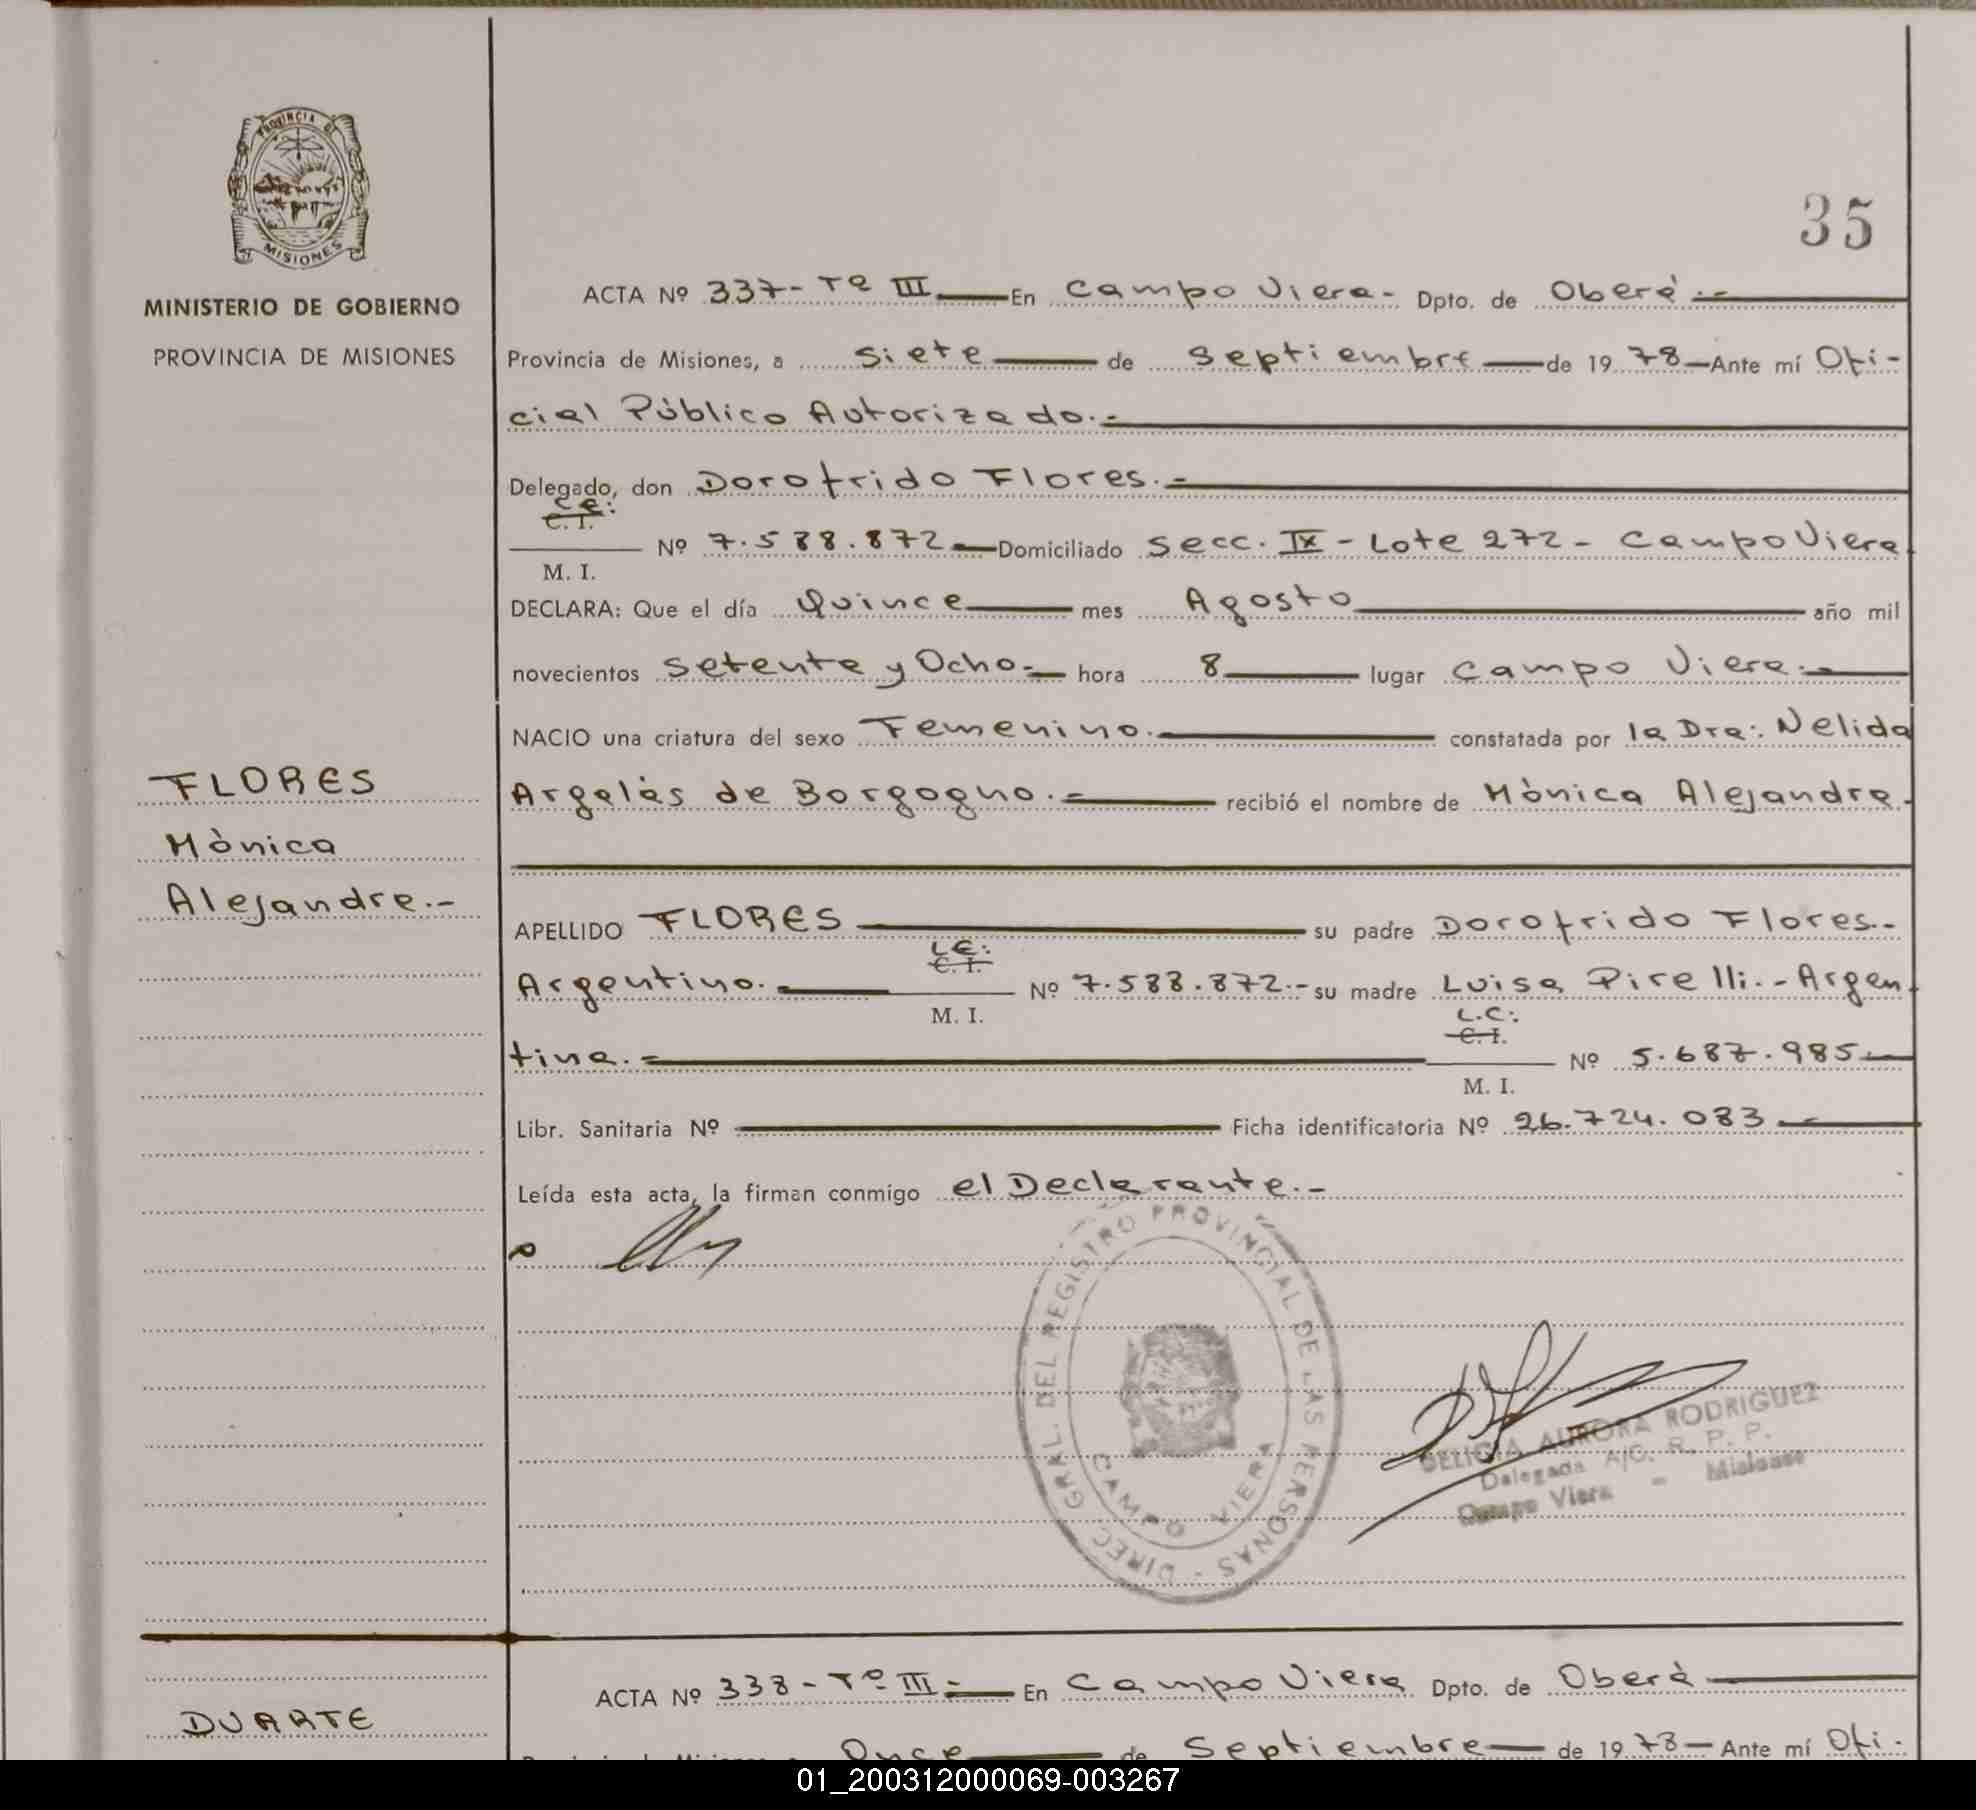 PROVINCIA DE
MISIONES
MINISTERIO DE GOBIERNO
PROVINCIA DE MISIONES
35
ACTA Nº 337 - Tº III — En Campo Viera - Dpto. de Oberá.-
Provincia de Misiones, a siete — de septiembre — de 1978 — Ante mí Ofi-
cial Público Autorizado.-
Delegado, don Dorofrido Flores.-
L.E:
C. I.
M. I.
Nº 7.588.872 — Domiciliado Secc. IX - Lote 272 - Campo Viera
DECLARA: Que el día Quince — mes Agosto — año mil
novecientos setenta y Ocho - hora 8 — lugar Campo Viera.-
NACIO una criatura del sexo Femenino. — constatada por la Dra: Nelida
Argelás de Borgogno.- recibió el nombre de Mònica Alejandra.
FLORES
Mònica
Alejandra.-
APELLIDO FLORES — su padre Dorofrido Flores.-
L.E:
C. I.
M. I.
Argentino. — Nº 7.588.872.- su madre Luisa Pirelli.- Argen
L.C:
C. I.
M. I.
tina.- Nº 5.687.985 —
Libr. Sanitaria Nº — Ficha identificatoria Nº 26.724.083 —
Leída esta acta, la firman conmigo el Declarante.-
DIREC. GRAL. DEL REGISTRO PROVINCIAL DE LAS PERSONAS -
CAMPO VIERA
DELICIA AURORA RODRIGUEZ
Delegada A/C. R. P. P.
Campo Viera - Misiones
ACTA Nº 338 - Tº III - En Campo Viera Dpto. de Oberà —
DUARTE
Once — de Septiembre — de 1978 — Ante mí Ofi-
01_200312000069-003267